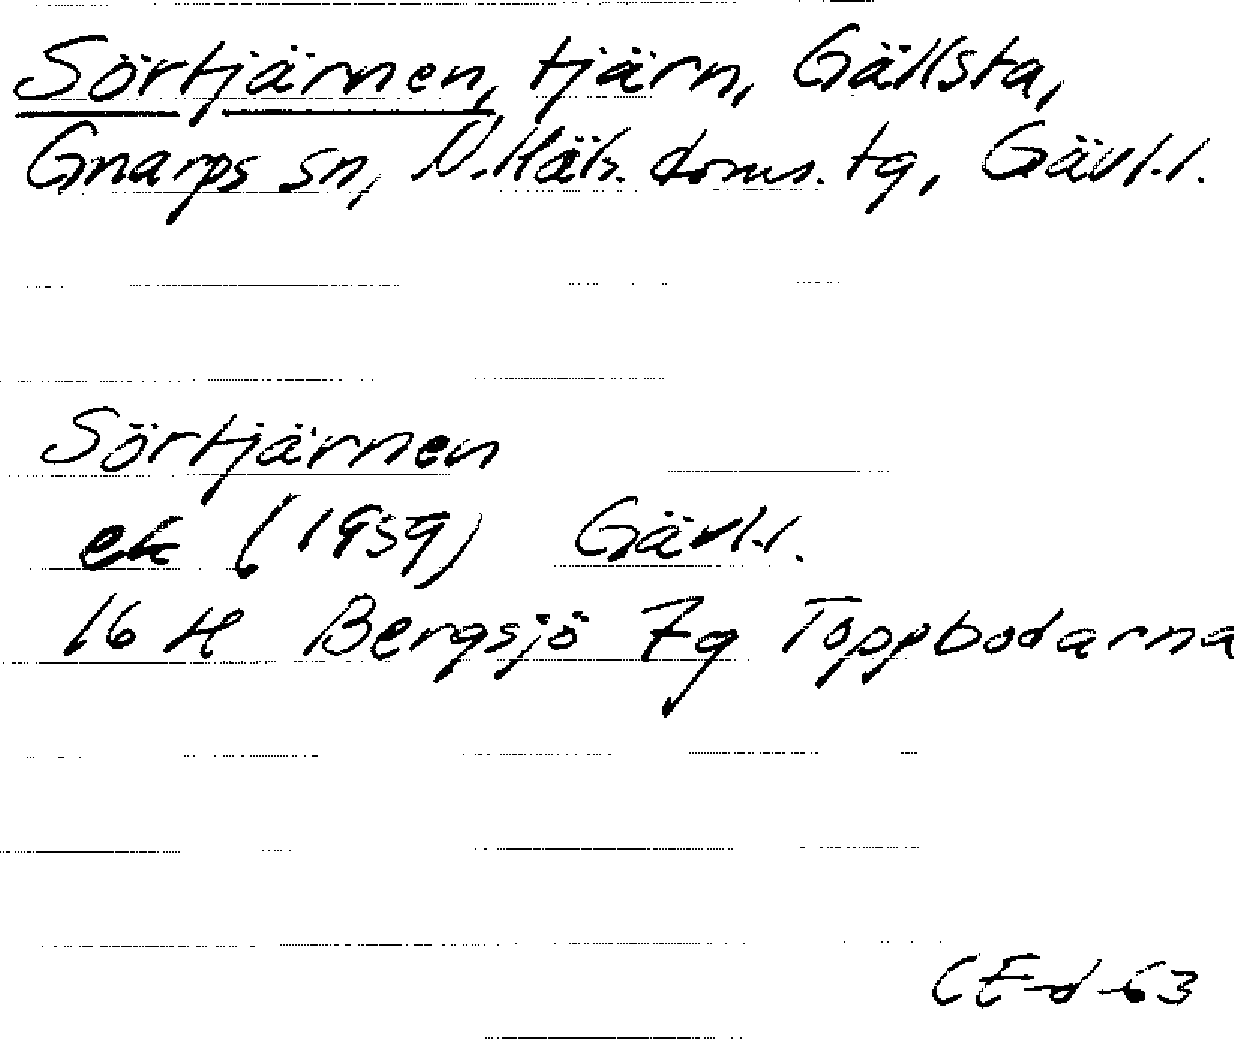 Sörtjärnen, tjärn, Gällsta,
Gnarps sn, N. Häls. doms. tg, Gävl. l.
Sörtjärnen
ek (1959) Gävl. l.
16 H Bergsjö 7g Toppbodarna
CEd-63